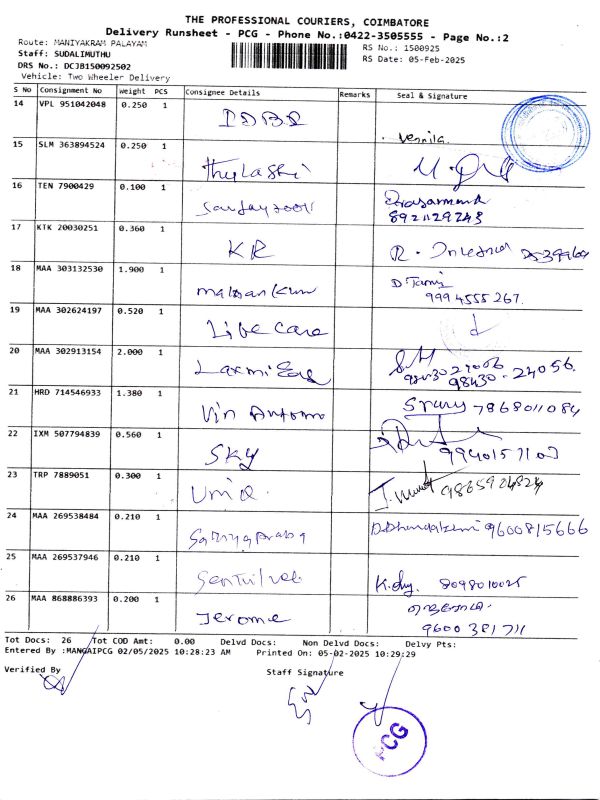 THE PROFESSIONAL COURIERS, COIMBATORE
Delivery Runsheet - PCG - Phone No.:0422-3505555 - Page No.:2
Route: MANIYAKRAM PALAYAM
RS No.: 1500925
Staff: SUDALIMUTHU
DRS No.: DCJB150092502
RS Date: 05-Feb-2025
Vehicle: Two Wheeler Delivery
S No Consignment No Weight PCS Consignee Details Remarks Seal & Signature
14 VPL 951042048 0.250 1 IDBI Vennila
15 SLM 363894524 0.250 1 Thulashi
16 TEN 7900429 0.100 1
8921129243
17 KTK 20030251 0.360 1 KR R.
18 MAA 303132530 1.900 1 D. Tamij
9994555267.
19 MAA 302624197 0.520 1 Life Care
20 MAA 302913154 2.000 1 Laxmi
98430-24056.
21 HRD 714546933 1.380 1 Vin Automo 7868011084
22 IXM 507794839 0.560 1 SKY
23 TRP 7889051 0.300 1 Uniq
24 MAA 269538484 0.210 1 Sathyapraba 9600815666
25 MAA 269537946 0.210 1 Senthilvel 8098010025
26 MAA 868886393 0.200 1 Jerome
9600381711
Tot Docs: 26 Tot COD Amt: 0.00 Delvd Docs: Non Delvd Docs: Delvy Pts:
Entered By :MANGAIPCG 02/05/2025 10:28:23 AM Printed On: 05-02-2025 10:29:29
Verified By
Staff Signature
PCG